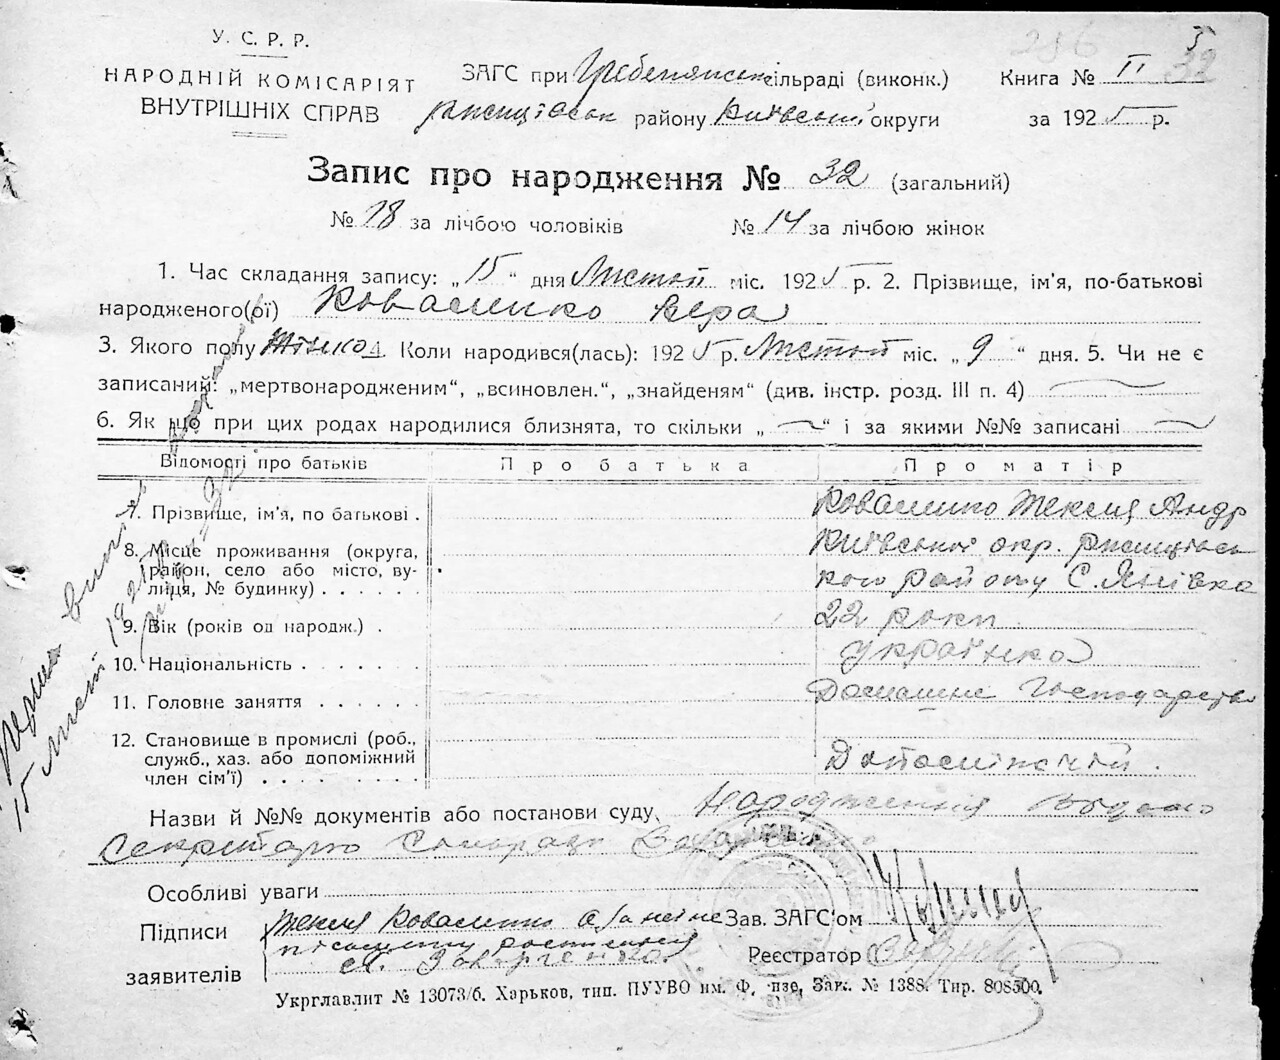 У. С. Р. Р.
НАРОДНІЙ КОМІСАРІЯТ
ВНУТРІШНІХ СПРАВ
ЗАГС при Гребенянськ сільраді (виконк.)
району Київської округи
Книга № II
за 1925 р.
32
Запис про народження № 32 (загальний)
№ 18 за лічбою чоловіків № 14 за лічбою жінок
1. Час складання запису: „15“ дня Листоп міс. 1925 р. 2. Прізвище, ім'я, по-батькові
народженого(ої) Коваленко Вера
3. Якого полу Жіноч 4. Коли народився(лась): 1925 р. Листоп міс. „9“ дня. 5. Чи не є
записаний: „мертвонародженим“, „всиновлен.“, „знайденям“ (див. інстр. розд. III п. 4)
6. Як що при цих родах народилися близнята, то скільки „ “ і за якими №№ записані
Відомості про батьків Про батька Про матір
7. Прізвище, ім'я, по батькові . Коваленко Текля Андр
8. Місце проживання (округа, район, село або місто, вулиця, № будинку) . . . . . . Київської окр. Ржищівсь
кого району С. Янівка
9. Вік (років од народж.) . 22 роки
10. Національність . . . . . . українка
11. Головне заняття . . . . . . Домашнє Господарство
12. Становище в промислі (роб.,
служб., хаз. або допоміжний
член сім'ї) . . . . . . . . .
Назви й №№ документів або постанови суду, Народження
Секретарю
Особливі уваги
Підписи
заявителів
Текля Коваленко а за неї не
писемну росписався
Зав. ЗАГС'ом
Реєстратор
Укрглавлит № 13073/б. Харьков, тип. ПУУВО им. Фрунзе, Зак. № 1388. Тир. 808500.